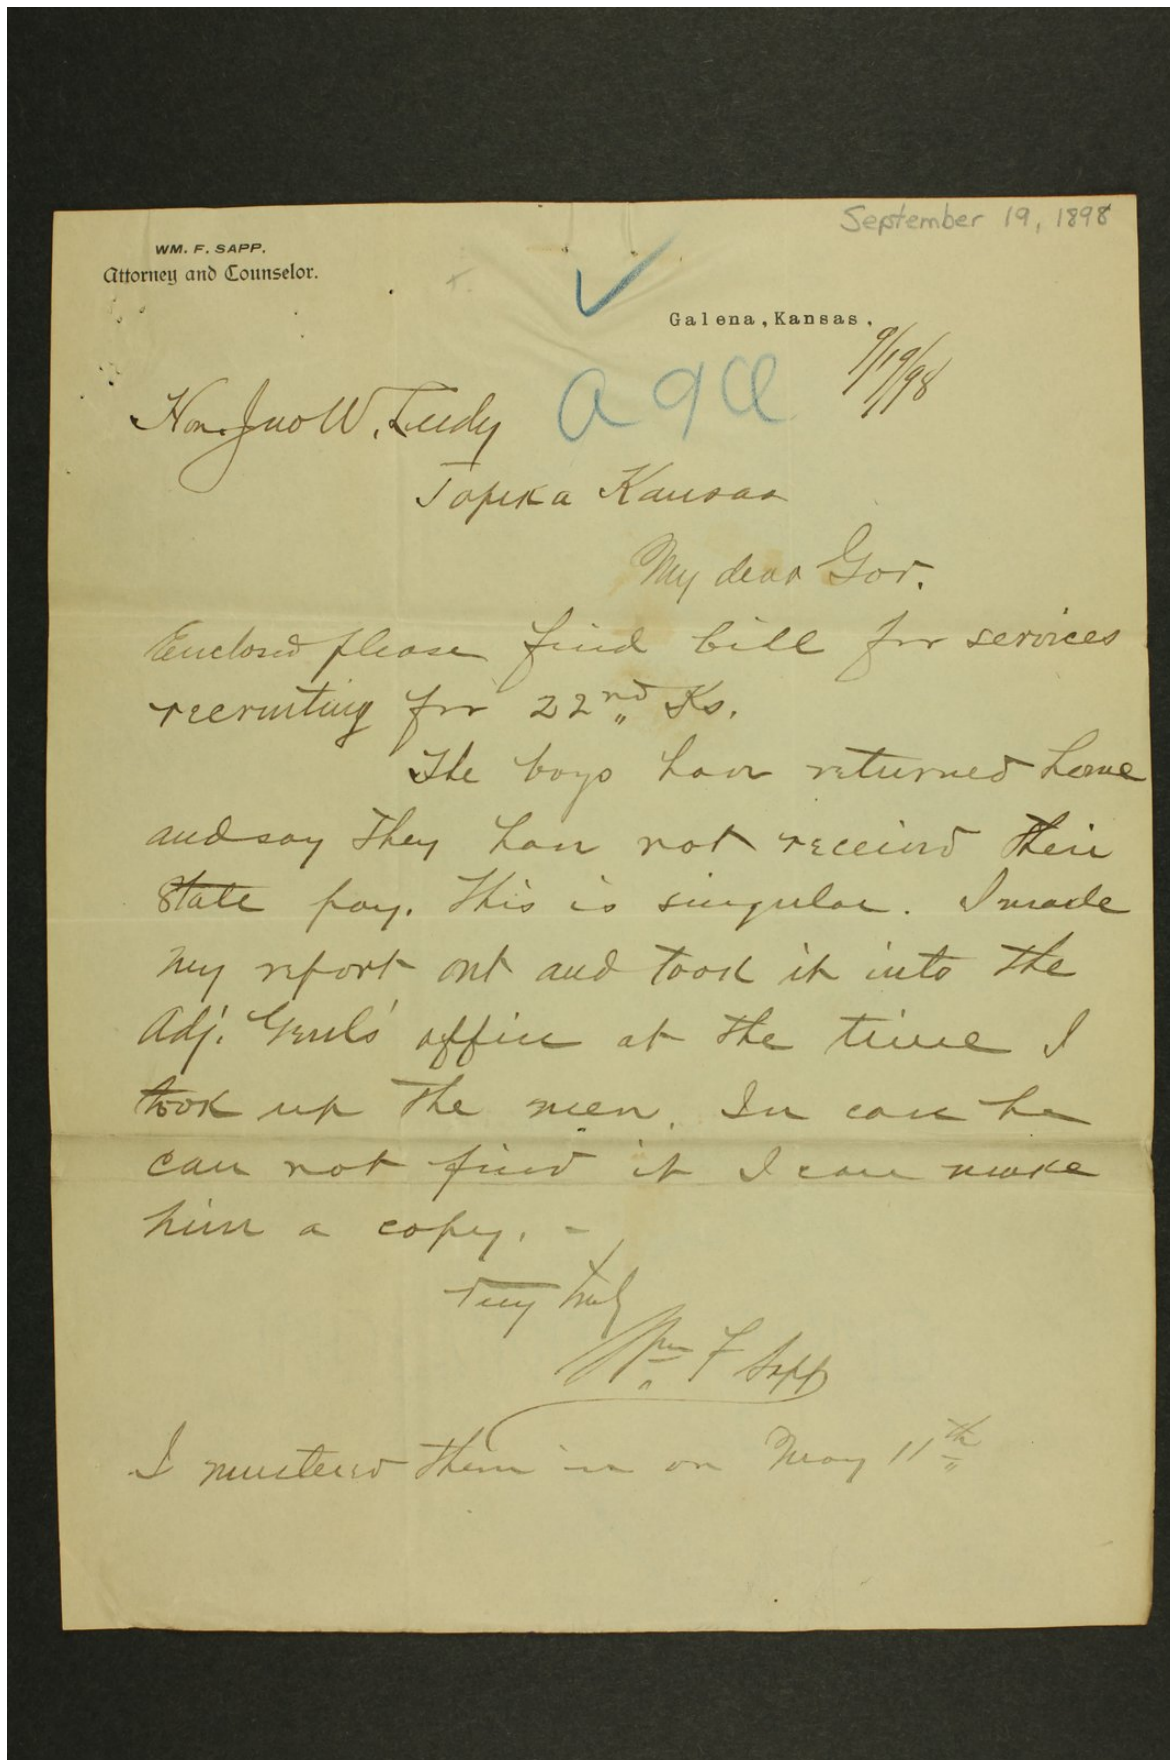 September 19, 1898
WM. F. SAPP.
Attorney and Counselor.
Galena, Kansas.
9/19/98
Hon. Jno W. Leedy
Topeka Kansas
My dear Gov.
Enclosed please find bill for services
recruiting for 22nd Ks.
The boys have returned home
and say they have not received their
State pay. This is singular. I made
my report out and took it into the
Adj. Genls' office at the time I
took up the men. In case he
can not find it I can make
him a copy. -
Very truly
Wm F Sapp
I mustered them in on May 11th